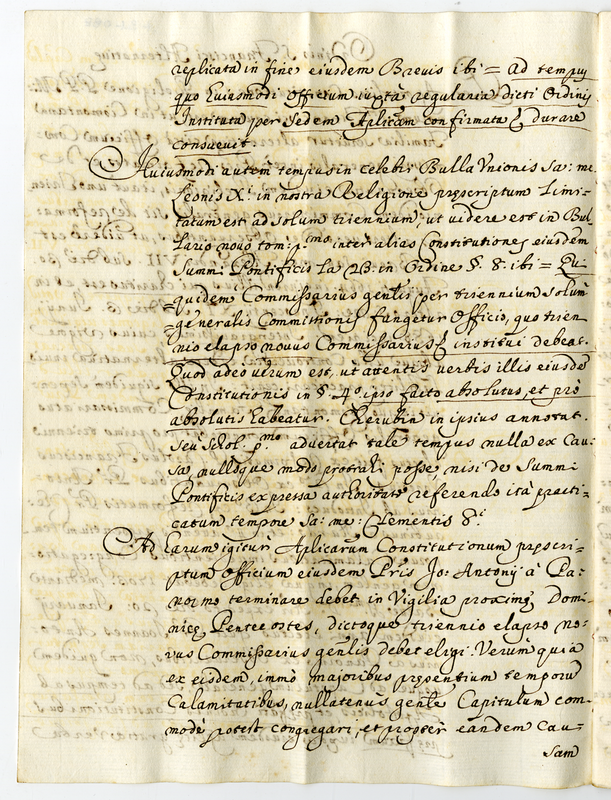 replicata in fine eiusdem Brevis ibi = ad tempus
quo huiusmodi Officium iuxta regularia dicti Ordinis
Instituta per Sedem Aplicam confirmata &c durare
consuevit
Huiusmodi autem tempus in celebri Bulla Unionis Sa: me:
Leonis X.i in nostra Religione prescriptum Limi-
tatum est ad solum triennium: ut videre est in Bul-
lario novo tom: p.mo inter alias Constitutiones eiusdem
Summi Pontificis La 23. in Ordine §. 8. ibi = Qui
quidem Commissarius genlis per triennium solum
generalis Commissionis fungetur Officio, quo trien
nio elapso novus Commissarius &c institui debeat.
Quod adeo verum est, ut attentis verbis illis eiusdem
Constitutionis in §. 4.o ipso facto absolutus, et pro
absolutis habeatur. Cherubin in ipsius annotat.
seu Schol. p.mo advertat tale tempus nulla ex Cau
sa, nulloque modo protrahi posse, nisi de Summi
Pontificis expressa authoritate referendo ita practi-
catum tempore Sa: me: Clementis 8.i
Ad harum igitur Aplicarum Constitutionum prescri-
ptum Officium eiusdem Pris Jo: Antonij à Pa-
normo terminare debet in Vigilia proximę Domi-
nicę Pentecostes, dictoque triennio elapso no-
vus Commissarius genlis debet eligi. Verum quia
ex eisdem, immò majoribus presentium temporu
Calamitatibus, nullatenus genle Capitulum com-
modè potest congregari, et propter eandem Cau-
sam